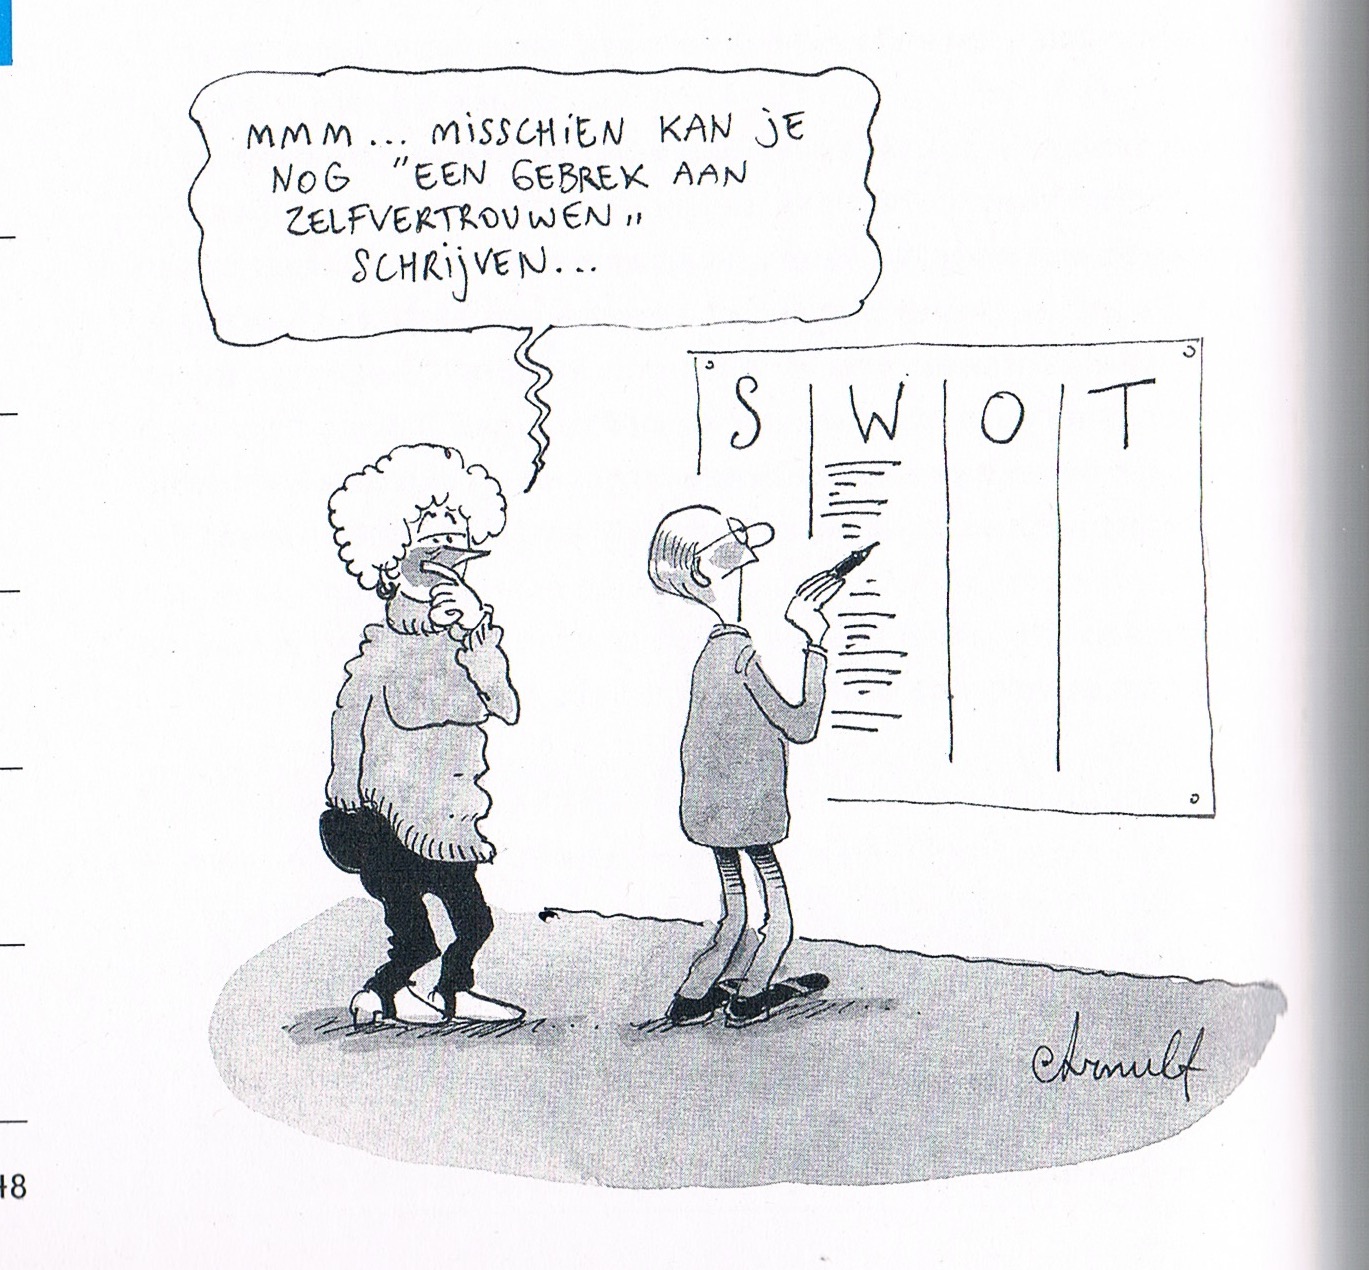 MMM... MISSCHIEN KAN JE
NOG "EEN GEBREK AAN
ZELFVERTROUWEN"
SCHRIJVEN...
S W O T
Arnulf
48